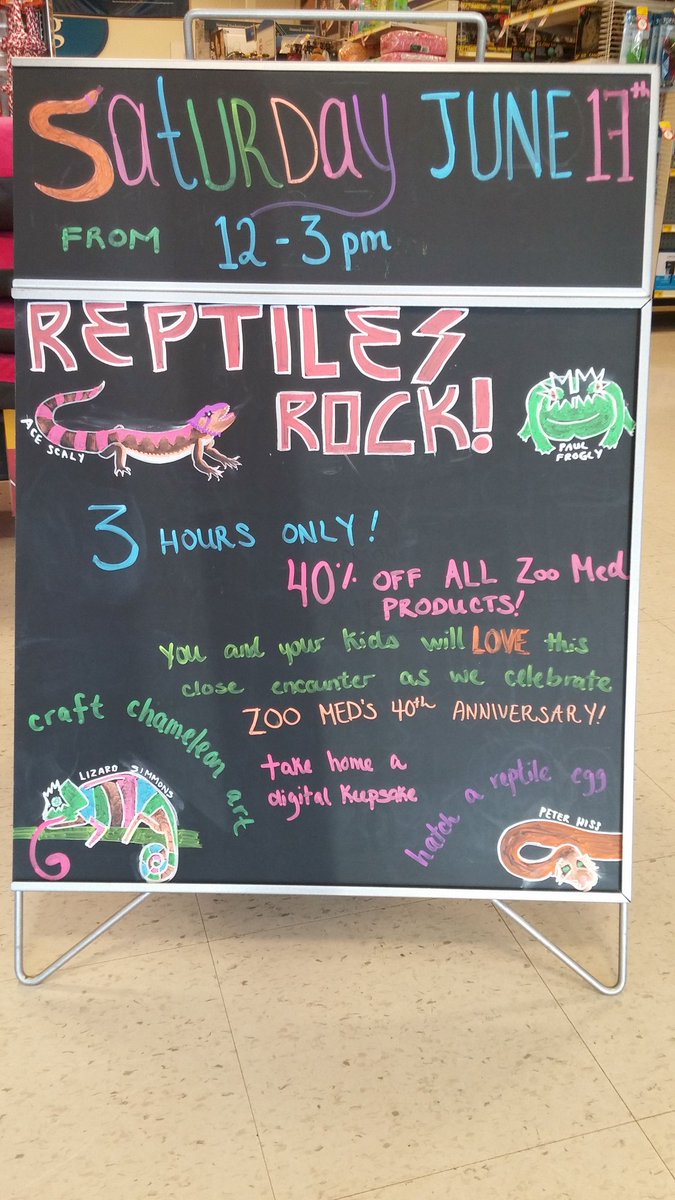 SaTURDay JUNE 17th
FROM 12-3pm
REPTILES
ROCK!
ACE SCALY
PAUL
FROGLY
3 HOURS ONLY!
40% OFF ALL Zoo Med
PRODUCTS!
You and your kids will LOVE this
close encounter as we celebrate
ZOO MED'S 40th ANNIVERSARY!
craft chameleon art
take home a
digital keepsake
hatch a reptile egg
LIZARD ZIMMONS
PETER HISS